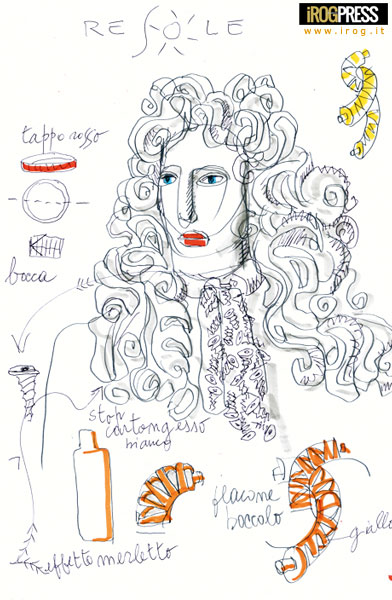 iROGPRESS
www.irog.it
RE SOLE
tappo rosso
bocca
stop
cartongesso
bianco
A)
flacone
boccolo
giallo
effetto merletto